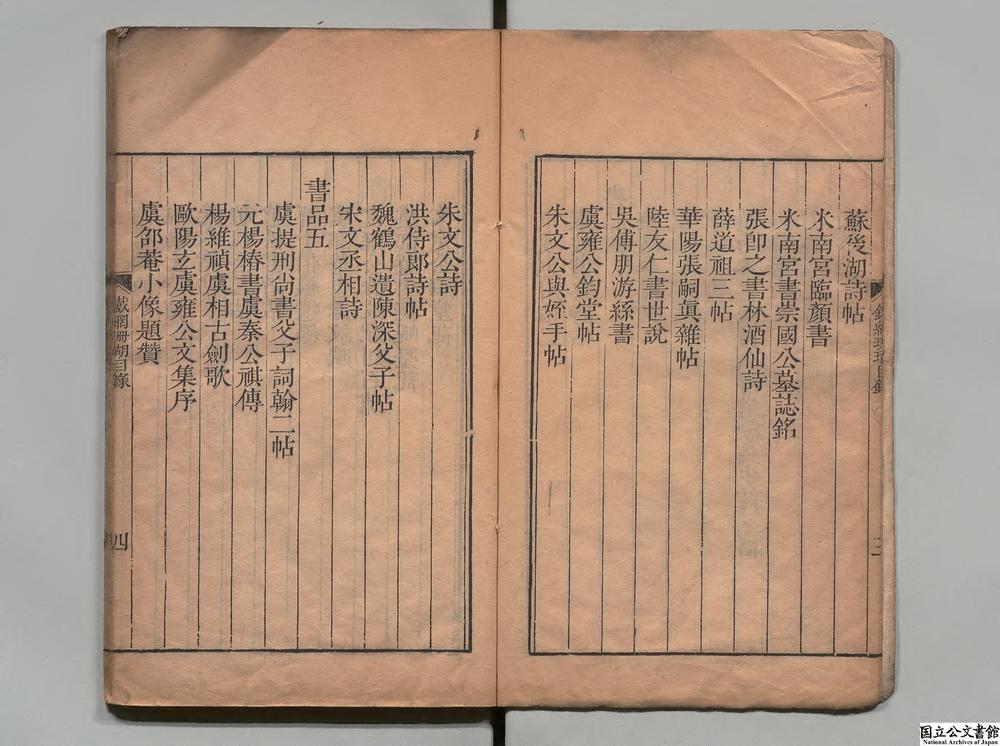 蘇後湖詩帖
米南宮臨顔書
米南宮書崇國公墓誌銘
張卽之書林酒仙詩
薛道祖三帖
華陽張嗣真雜帖
陸友仁書世說
吳傅朋游絲書
虞雍公鈞堂帖
朱文公與姪手帖
三
朱文公詩
洪侍郎詩帖
魏鶴山遺陳深父子帖
宋文丞相詩
書品五
虞提刑尚書父子詞翰二帖
元楊椿書虞秦公祺傳
楊維禎虞相古劍歌
歐陽玄虞雍公文集序
虞邵菴小像題贊
鐵網珊瑚目錄
四
国立公文書館
National Archives of Japan